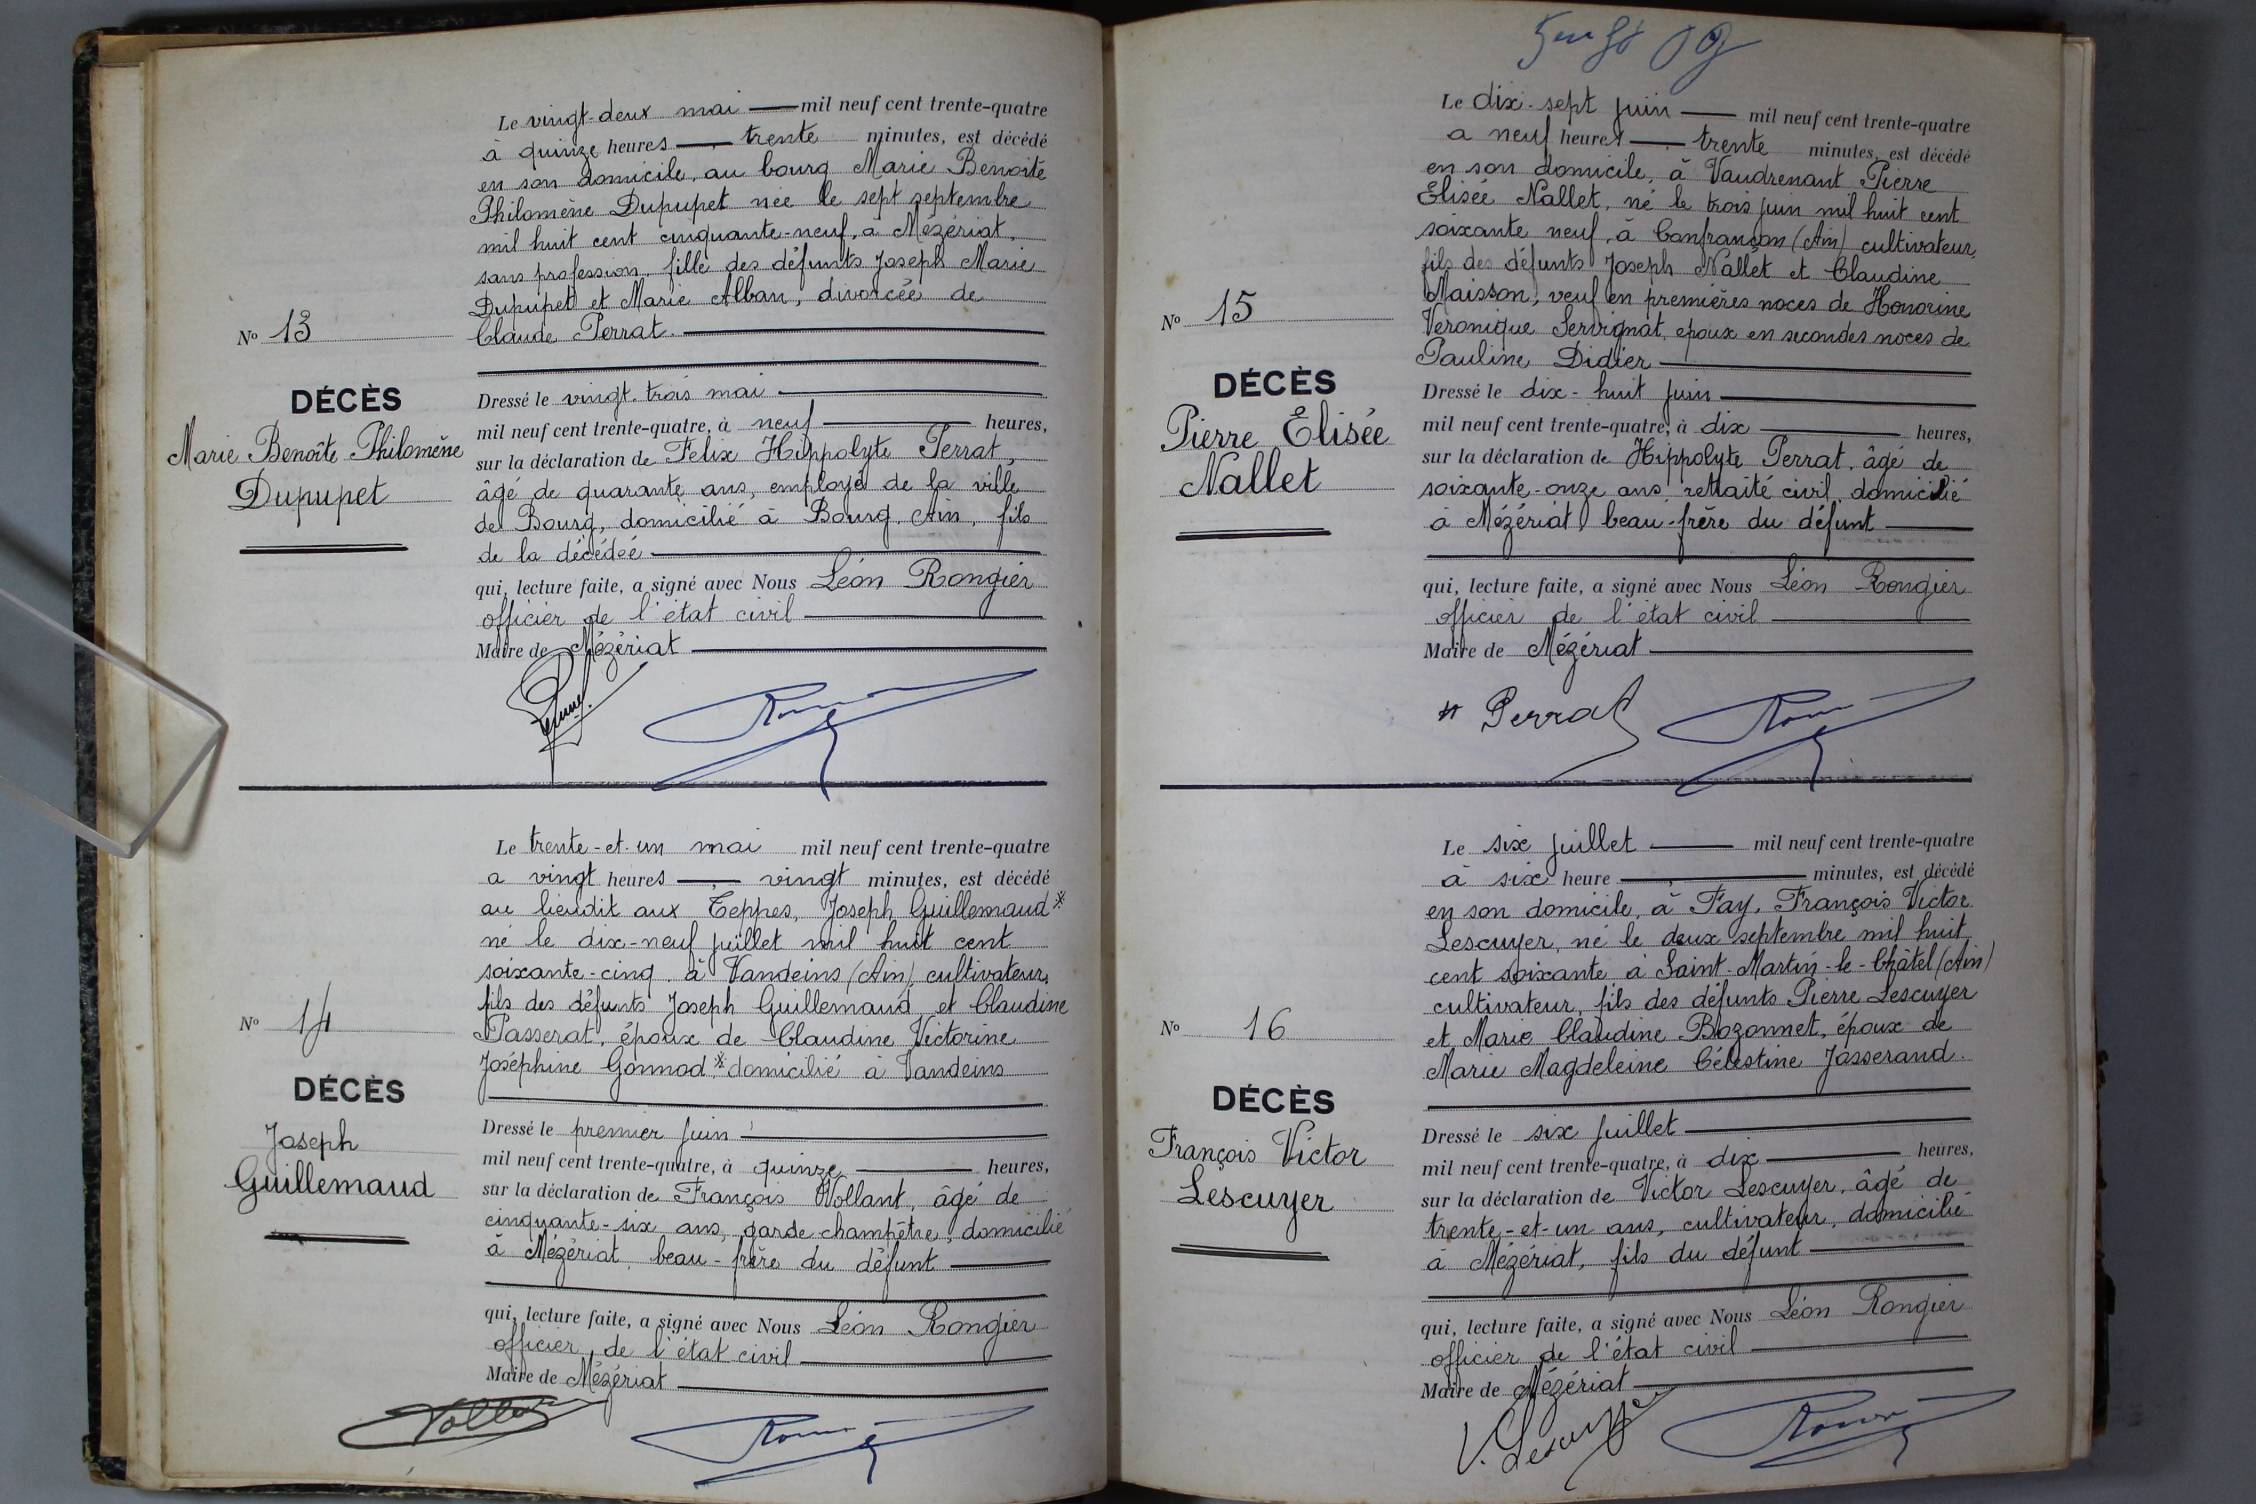 Le vingt-deux mai mil neuf cent trente-quatre
à quinze heures trente minutes, est décédé
en son domicile, au bourg Marie Benoîte
Philomène Dupupet née le sept septembre
mil huit cent cinquante-neuf, à Mézériat,
sans profession, fille des défunts Joseph Marie
Dupupet et Marie Alban, divorcée de
Claude Perrat.
No 13
DÉCÈS
Marie Benoîte Philomène
Dupupet
Dressé le vingt-trois mai
mil neuf cent trente-quatre, à neuf heures,
sur la déclaration de Felix Hippolyte Perrat,
âgé de quarante ans, employé de la ville
de Bourg, domicilié à Bourg, Ain, fils
de la décédée
qui, lecture faite, a signé avec Nous Léon Rongier
officier de l'état civil
Maire de Mézériat
Le trente-et-un mai mil neuf cent trente-quatre
a vingt heures vingt minutes, est décédé
au lieudit aux Teppes, Joseph Guillemaud*
né le dix-neuf juillet mil huit cent
soixante-cinq, à Vandeins (Ain), cultivateur,
fils des défunts Joseph Guillemaud et Claudine
Passerat, époux de Claudine Victorine
Joséphine Gonnod * domicilié à Vandeins
No 14
DÉCÈS
Joseph
Guillemaud
Dressé le premier juin
mil neuf cent trente-quatre, à quinze heures,
sur la déclaration de François Vollant, âgé de
cinquante-six ans, garde-champêtre, domicilié
à Mézériat, beau-frère du défunt
qui, lecture faite, a signé avec Nous Léon Rongier
officier de l'état civil
Maire de Mézériat
Le dix-sept juin mil neuf cent trente-quatre
a neuf heures trente minutes, est décédé
en son domicile, à Vaudrenant Pierre
Elisée Nallet, né le trois juin mil huit cent
soixante neuf, à Confrançon (Ain) cultivateur,
fils des défunts Joseph Nallet et Claudine
Maisson, veuf en premières noces de Honorine
Veronique Servignat, epoux en secondes noces de
Pauline Didier
No 15
DÉCÈS
Pierre Elisée
Nallet
Dressé le dix-huit juin
mil neuf cent trente-quatre, à dix heures,
sur la déclaration de Hippolyte Perrat, âgé de
soixante-onze ans, retraité civil, domicilié
à Mézériat, beau-frère du défunt
qui, lecture faite, a signé avec Nous Léon Rongier
officier de l'état civil
Maire de Mézériat
Perrat
Le six juillet mil neuf cent trente-quatre
à six heure minutes, est décédé
en son domicile, à Fay, François Victor
Lescuyer, né le deux septembre mil huit
cent soixante à Saint-Martin-le-Châtel (Ain)
cultivateur, fils des défunts Pierre Lescuyer
et Marie Claudine Bozonnet, époux de
Marie Magdeleine Célestine Josserand.
No 16
DÉCÈS
François Victor
Lescuyer
Dressé le six juillet
mil neuf cent trente-quatre, à dix heures,
sur la déclaration de Victor Lescuyer, âgé de
trente-et-un ans, cultivateur, domicilié
à Mézériat, fils du défunt
qui, lecture faite, a signé avec Nous Léon Rongier
officier de l'état civil
Maire de Mézériat
V. Lescuyer